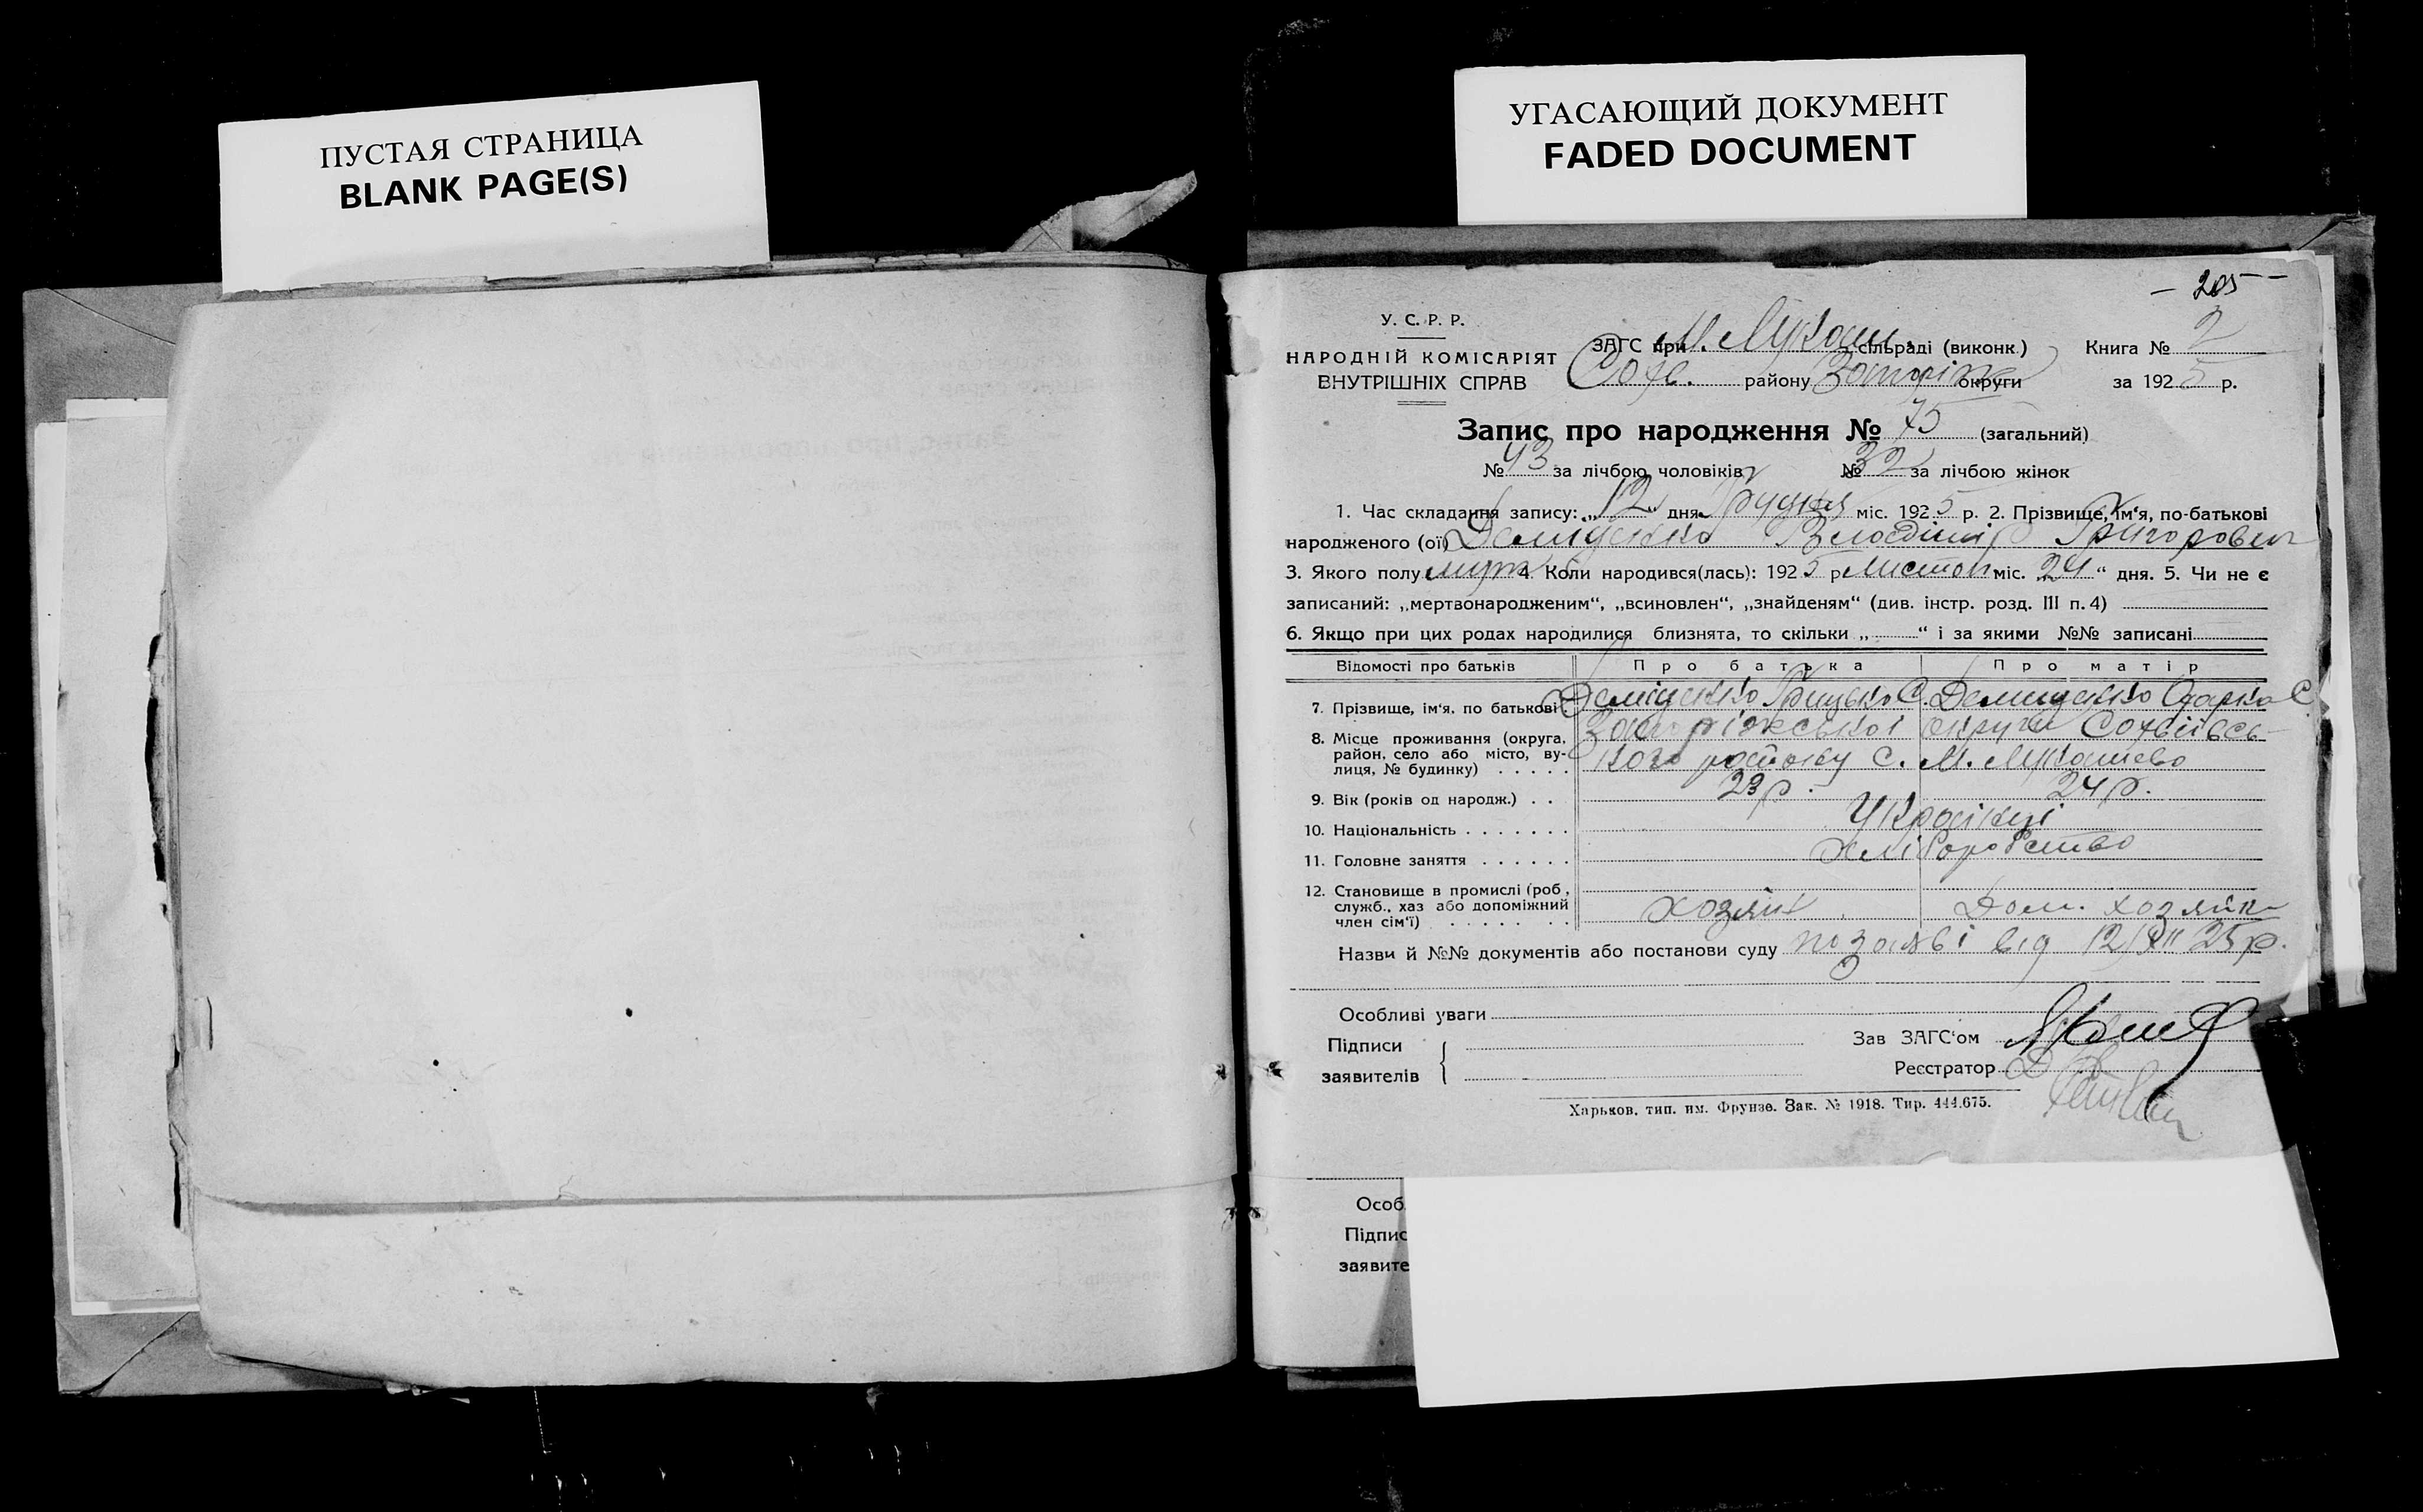 ПУСТАЯ СТРАНИЦА
BLANK PAGE(S)
УГАСАЮЩИЙ ДОКУМЕНТ
FADED DOCUMENT
– 205 –
У. С. Р. Р.
НАРОДНІЙ КОМІСАРІЯТ
ВНУТРІШНІХ СПРАВ
ЗАГС при М. Мукаш. сільраді (виконк.) Книга № 2
Соф. району Запоріж округи за 1925 р.
Запис про народження № 75 (загальний)
№ 43 за лічбою чоловіків № 32 за лічбою жінок
1. Час складання запису: „12" дня Грудня міс. 1925 р. 2. Прізвище, ім'я, по-батькові
народженого (ої) Демиденко Володімір Григорович
3. Якого полу муж 4. Коли народився(лась): 1925 р Листоп міс. „24" дня. 5. Чи не є
записаний: „мертвонародженим", „всиновлен", „знайденям" (див. інстр. розд. III п. 4)
6. Якщо при цих родах народилися близнята, то скільки „ " і за якими №№ записані
Відомості про батьків Про батька Про матір
7. Прізвище, ім'я, по батькові. Деміденко Грицько С. Демиденко Одарка С
8. Місце проживання (округа, район, село або місто, вулиця, № будинку) Запоріжської округи Софіївсь
кого району С. М. Мукошево
9. Вік (років од народж.) 23 р. 24 р.
10. Національність Українці
11. Головне заняття Хліборобство
12. Становище в промислі (роб., служб., хаз або допоміжний член сім'ї) хозяїн Дом. хозяйк
Назви й №№ документів або постанови суду по заяві від 12/XII 25 р.
Особливі уваги
Підписи
заявителів
Зав ЗАГС'ом
Реєстратор
Харьков, тип. им. Фрунзе. Зак. № 1918. Тир. 444.675.
Особ
Підпис
заявите